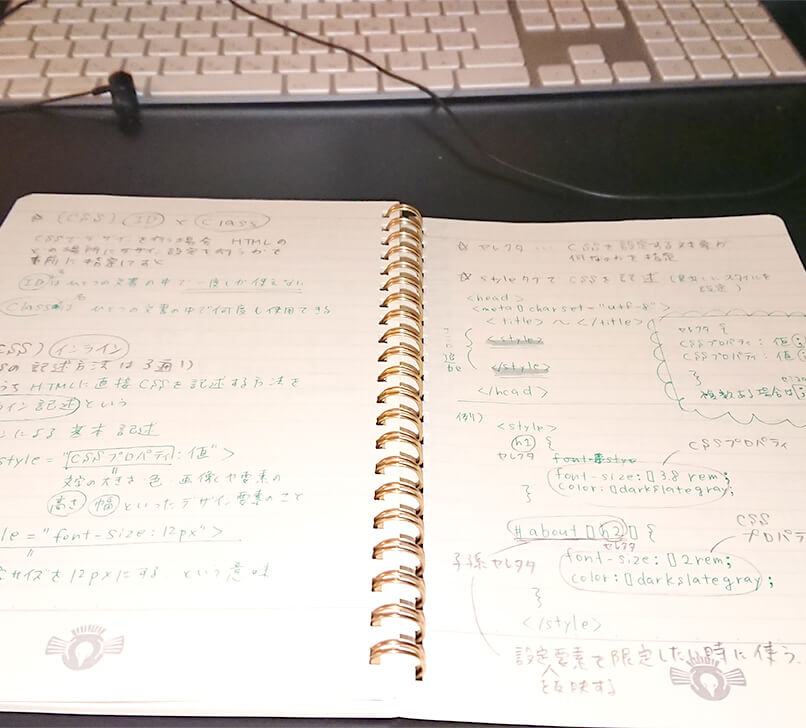 ☆ (CSS) ID と Class
CSSでデザインを行う場合 HTMLの
どの場所にデザイン設定を行うかを
事前に指定しておく
IDは ひとつの文書の中で一度しか使えない
Classは ひとつの文書の中で何度も使用できる
CSS) インライン
の記述方法は3通り
うち HTMLに直接CSSを記述する方法を
イン記述という
による 基本記述
style="CSSプロパティ:値">
文字の大きさ 色 画像や要素の
高さ 幅 といったデザイン要素のこと
le="font-size:12px">
サイズを12pxにする という意味
☆ セレクタ … CSSを設定する対象が
何なのかを指定
☆ styleタグでCSSを記述 (見出しにスタイルを
設定)
<head>
<meta charset="utf-8">
<title> 〜 </title>
<style>
</style>
</head>
セレクタ {
CSSプロパティ: 値;
CSSプロパティ: 値;
}
複数ある場合は;
例)
<style>
h1 {
セレクタ
font-size: 3.8rem;
color: darkslategray;
}
CSSプロパティ
#about h2 {
セレクタ
子孫セレクタ
font-size: 2rem;
color: darkslategray;
}
CSS
プロパティ
</style>
設定要素を限定したい時に使う。
を反映する